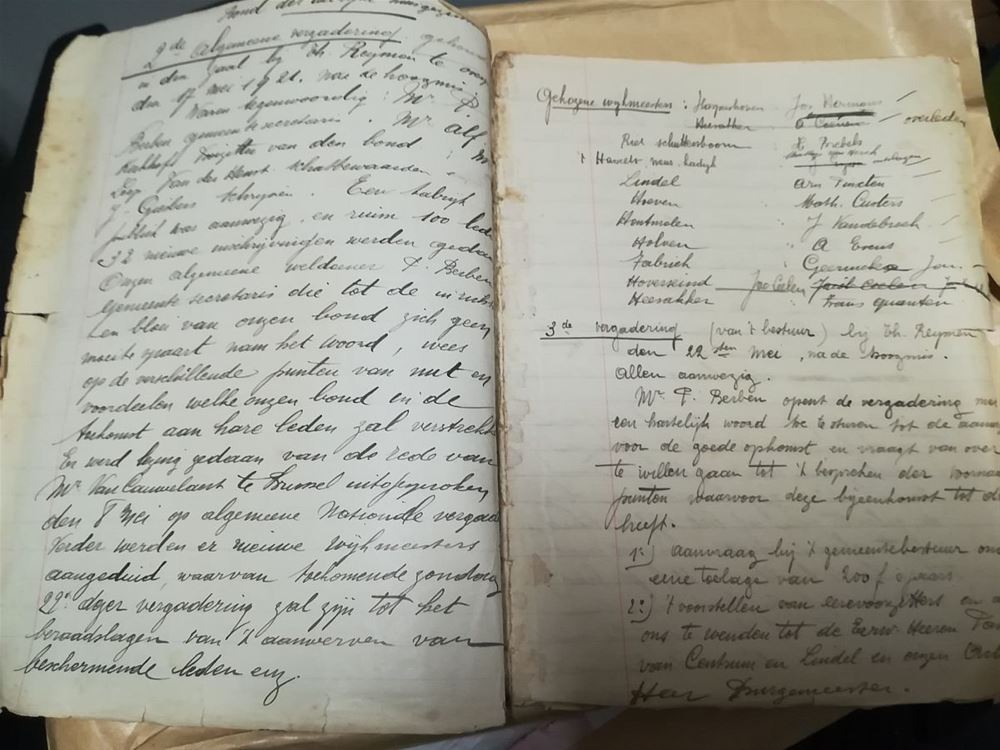 Bond der
2de Algemeene vergadering
in den zaal bij Th. Reymen te
den 17 mei 1921. na de hoogmis
Waren tegenwoordig : Mr P
Berben gemeentesecretaris . Mr Alf
voorzitter van den bond : M
Van der Henst. schatbewaarder
J. schrijver . Een talrijk
publiek was aanwezig, en ruim 100 lede
32 nieuwe inschrijvingen werden gedaan
Onzen algemeene weldoener P. Berben
gemeente secretaris die tot de
en bloei van onzen bond zich geen
moeite spaart nam het woord, wees
op de verschillende punten van nut en
voordeelen welke onzen bond in de
toekomst aan hare leden zal verstrekke
Er werd lezing gedaan van de rede van
Mr Van Cauwelaert te Brussel uitgesproken
den 8 Mei op algemeene Nationale vergad
Verder werden er nieuwe wijkmeesters
aangeduid, waarvan toekomende zondag
22e dezer vergadering zal zijn tot het
beraadslagen van 't aanwerven van
beschermende leden enz.
Gekozene wijkmeesters : Jos Hermans
Heesakker A overleden
Riet schuttersboom
't Hamels
Lindel Arn
Hoeven Math. Custers
Houtmolen J Vandebroek
Holven A Evens
Fabriek Geerinckx Jan
Hoverseind Jac Ceelen
Heesakker Frans Quanten
3de vergadering (van 't bestuur) bij Th. Reymen
den 22sten Mei, na de hoogmis.
Allen aanwezig.
Mr P. Berben opent de vergadering met
een hartelijk woord toe te sturen tot de aanw
voor de goede opkomst, en vraagt van over
te willen gaan tot 't bespreken der voorna
punten waarvoor deze bijeenkomst tot d
heeft.
1e) aanvraag bij 't gemeentebestuur om
eene toelage van 200 f
2e) 't voorstellen van eerevoorzitters en
ons te wenden tot de Eerw. Heeren Pas
van Centrum en Lindel en onzen
Heer Burgemeester.